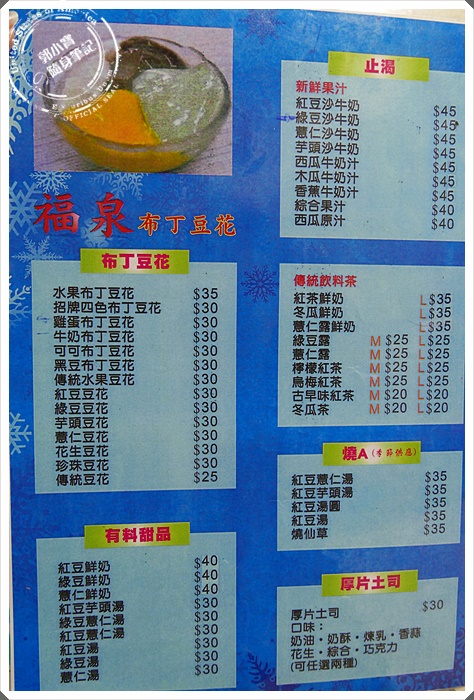 福泉布丁豆花
布丁豆花
水果布丁豆花 $35
招牌四色布丁豆花 $30
雞蛋布丁豆花 $30
牛奶布丁豆花 $30
可可布丁豆花 $30
黑豆布丁豆花 $30
傳統水果豆花 $30
紅豆豆花 $30
綠豆豆花 $30
芋頭豆花 $30
薏仁豆花 $30
花生豆花 $30
珍珠豆花 $30
傳統豆花 $25
有料甜品
紅豆鮮奶 $40
綠豆鮮奶 $40
薏仁鮮奶 $40
紅豆芋頭湯 $30
綠豆薏仁湯 $30
紅豆薏仁湯 $30
紅豆湯 $30
綠豆湯 $30
薏仁湯 $30
止渴
新鮮果汁
紅豆沙牛奶 $45
綠豆沙牛奶 $45
薏仁沙牛奶 $45
芋頭沙牛奶 $45
西瓜牛奶汁 $45
木瓜牛奶汁 $45
香蕉牛奶汁 $45
綜合果汁 $40
西瓜原汁 $40
傳統飲料茶
紅茶鮮奶 L$35
冬瓜鮮奶 L$35
薏仁露鮮奶 L$35
綠豆露 M$25 L$25
薏仁露 M$25 L$25
檸檬紅茶 M$25 L$25
烏梅紅茶 M$25 L$25
古早味紅茶 M$20 L$20
冬瓜茶 M$20 L$20
燒A(季節供應)
紅豆薏仁湯 $35
紅豆芋頭湯 $35
紅豆湯圓 $35
紅豆湯 $35
燒仙草 $35
厚片土司
厚片土司 $30
口味：
奶油・奶酥・煉乳・香蒜
花生・綜合・巧克力
(可任選兩種)